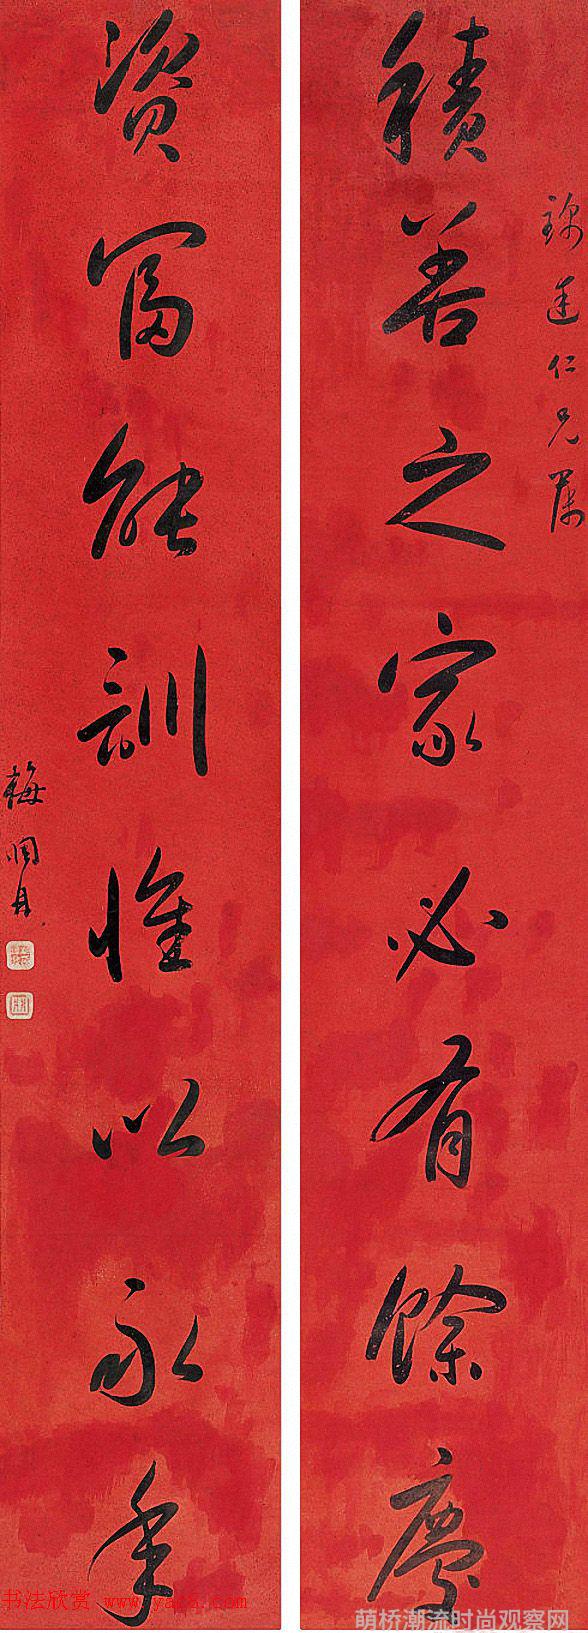 仁兄屬
積善之家必有餘慶
資富能訓惟以永年
梅調鼎
书法欣赏 www.yac8.com
萌桥潮流时尚观察网